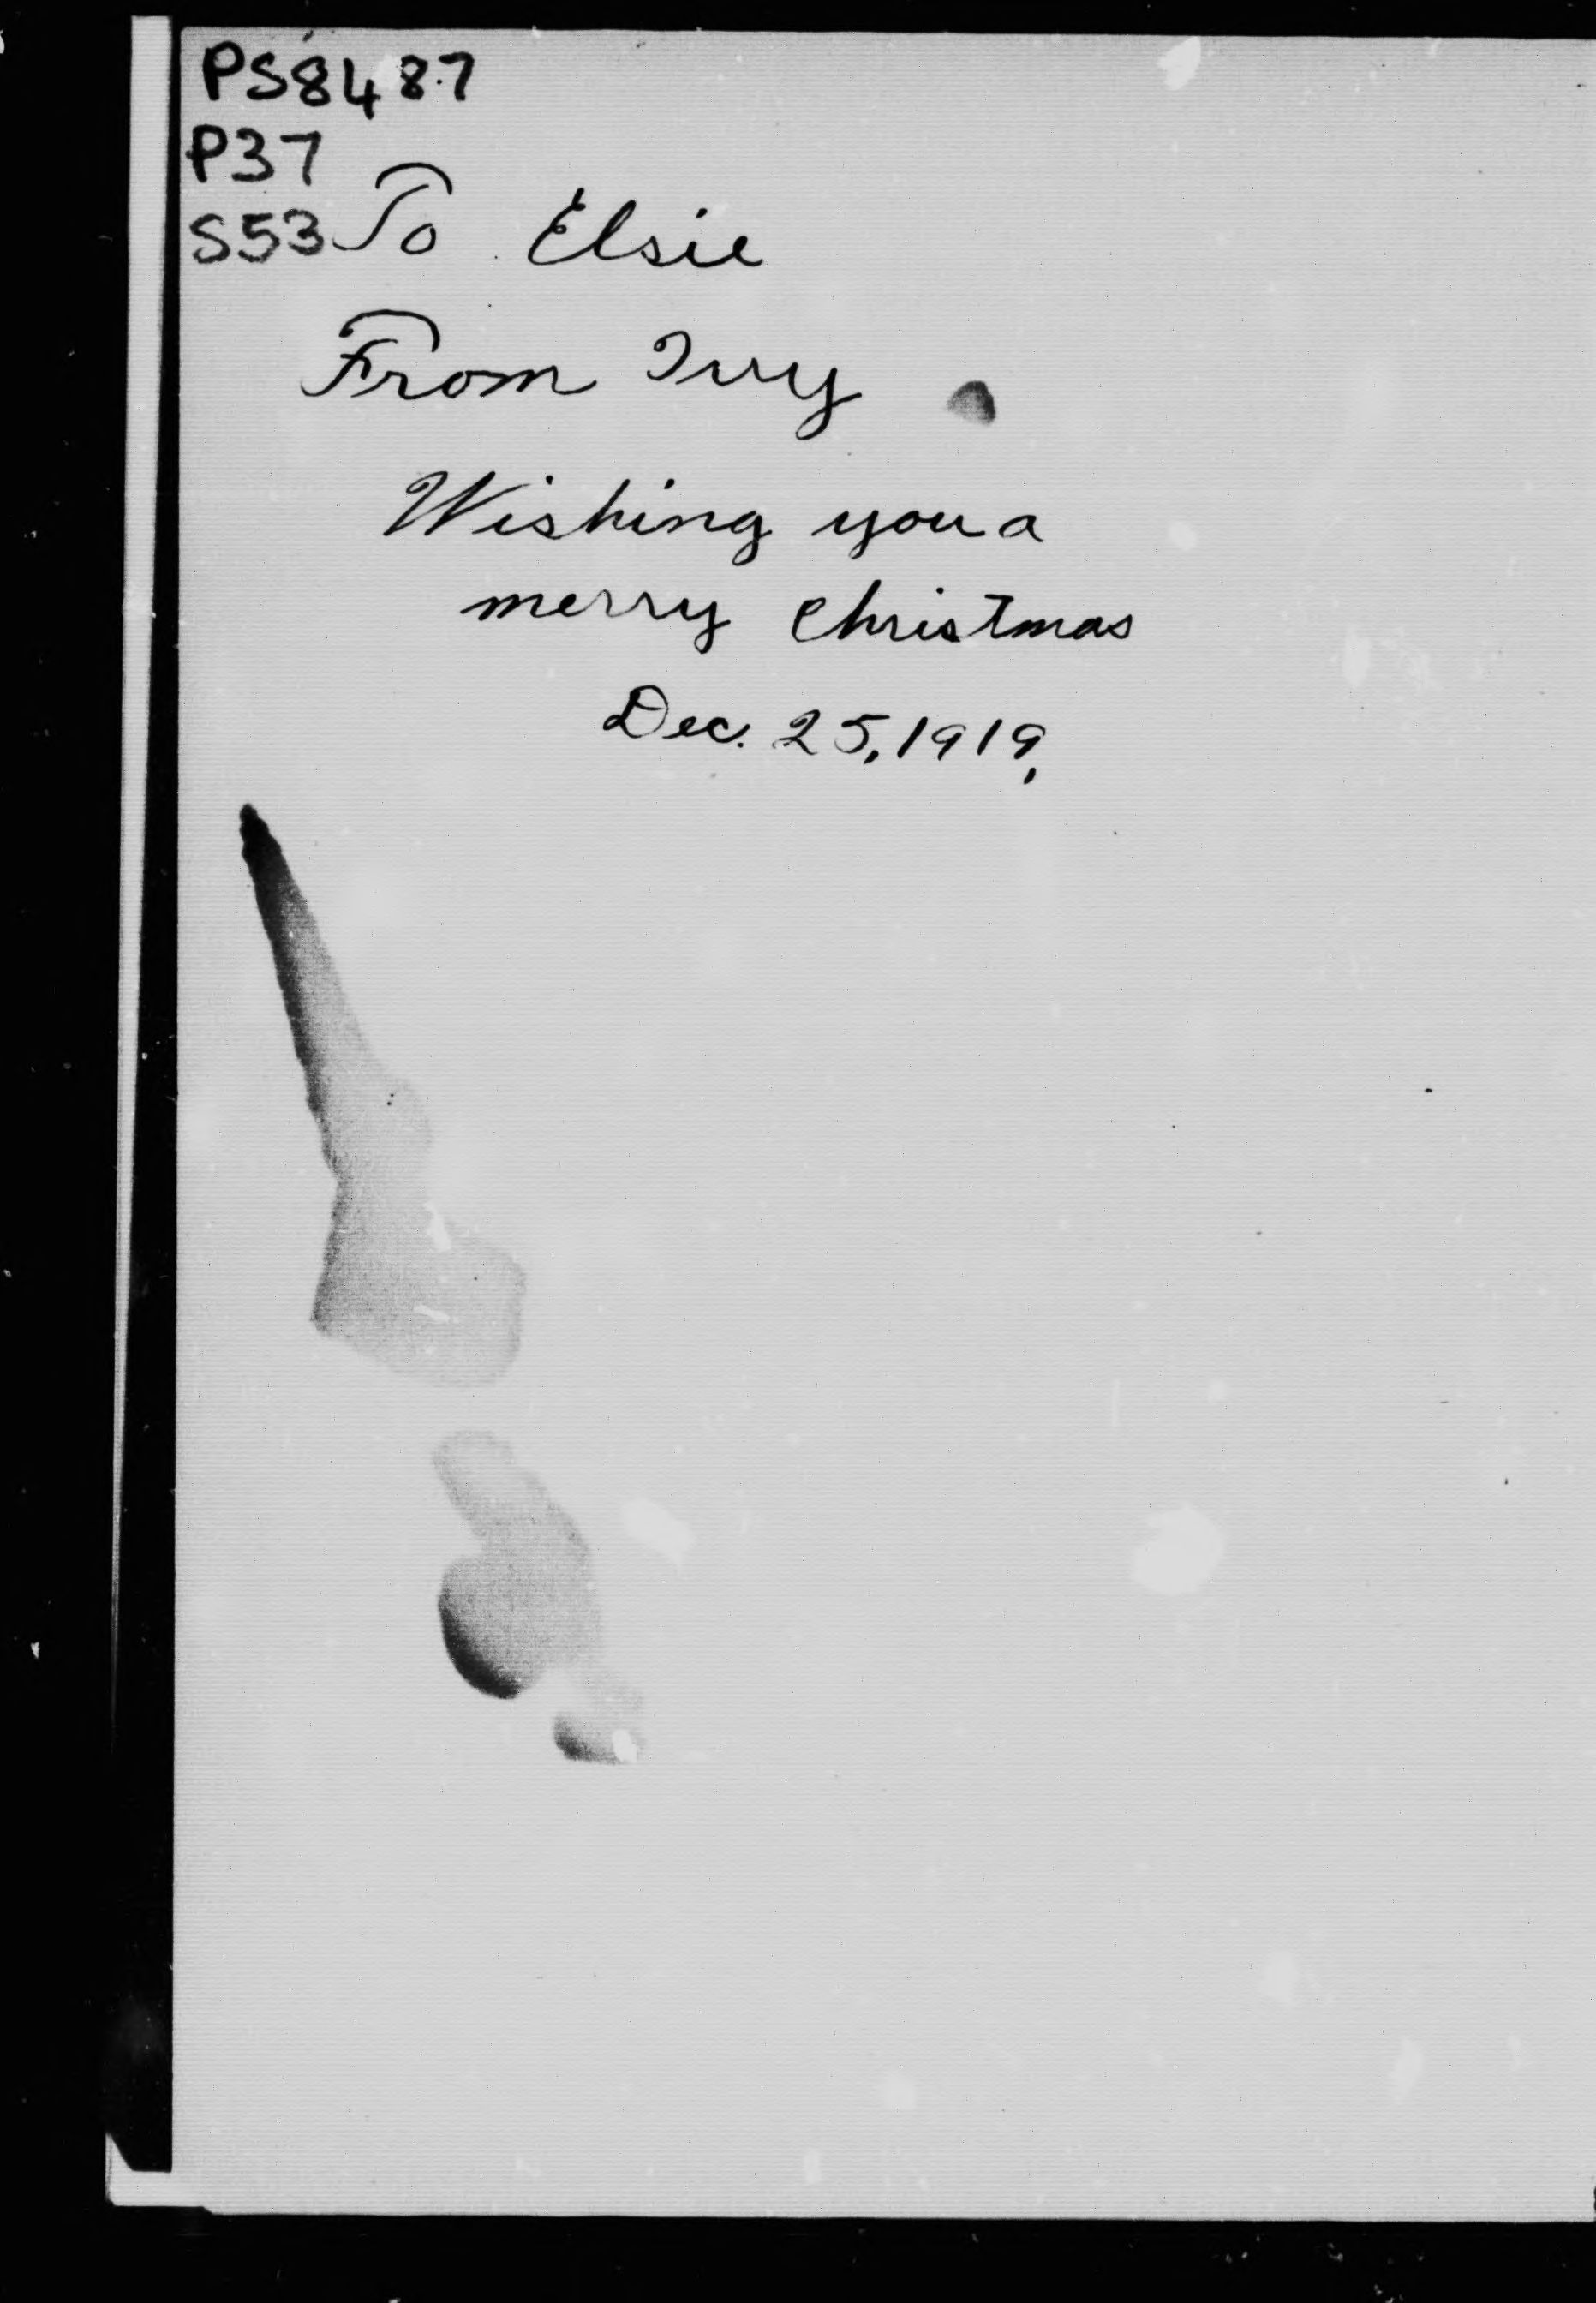 PS8487
P37
S53 To Elsie
From Ivy
Wishing you a
merry Christmas
Dec. 25, 1919,